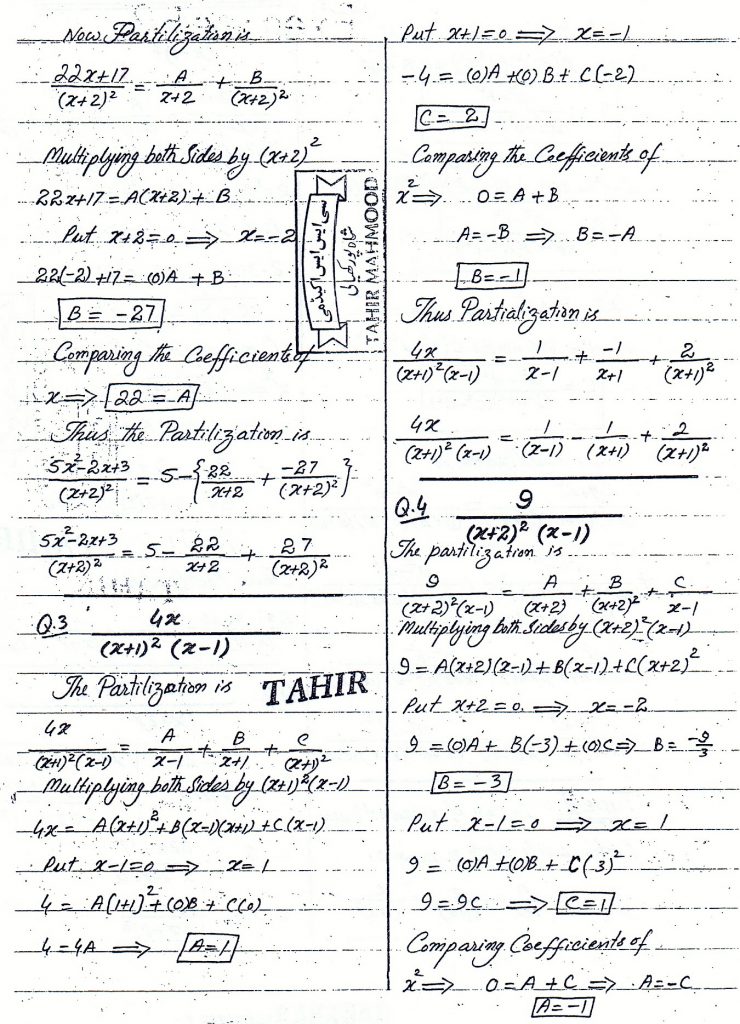 Now Partilization is
22x+17/(x+2)² = A/x+2 + B/(x+2)²
Multiplying both Sides by (x+2)²
22x+17 = A(x+2) + B
Put x+2=0 ⟹ x=-2
22(-2)+17 = (0)A + B
B = -27
Comparing the Coefficient of
x ⟹ 22 = A
Thus the Partilization is
5x²-2x+3/(x+2)² = 5-{22/x+2 + -27/(x+2)²}
5x²-2x+3/(x+2)² = 5 - 22/x+2 + 27/(x+2)²
Q.3 4x/(x+1)² (x-1)
The Partilization is
TAHIR
4x/(x+1)²(x-1) = A/x-1 + B/x+1 + C/(x+1)²
Multiplying both Sides by (x+1)²(x-1)
4x = A(x+1)²+B(x-1)(x+1)+C(x-1)
Put x-1=0 ⟹ x=1
4 = A[1+1]²+(0)B + C(0)
4=4A ⟹ A=1
سی ایس ایس اکیڈمی
TAHIR MAHMOOD
Put x+1=0 ⟹ x=-1
-4 = (0)A+(0)B+ C(-2)
C= 2
Comparing the Coefficients of
x² ⟹ 0=A+B
A=-B ⟹ B=-A
B=-1
Thus Partialization is
4x/(x+1)²(x-1) = 1/x-1 + -1/x+1 + 2/(x+1)²
4x/(x+1)²(x-1) = 1/(x-1) - 1/(x+1) + 2/(x+1)²
Q.4 9/(x+2)² (x-1)
The partilization is
9/(x+2)²(x-1) = A/(x+2) + B/(x+2)² + C/x-1
Multiplying both Sides by (x+2)²(x-1)
9=A(x+2)(x-1)+B(x-1)+C(x+2)²
Put x+2=0. ⟹ x=-2
9=(0)A+ B(-3)+(0)C ⟹ B= -9/3
B=-3
Put x-1=0 ⟹ x=1
9= (0)A+(0)B+ C(3)²
9=9C ⟹ C=1
Comparing Coefficients of
x² ⟹ 0=A+C ⟹ A=-C
A=-1